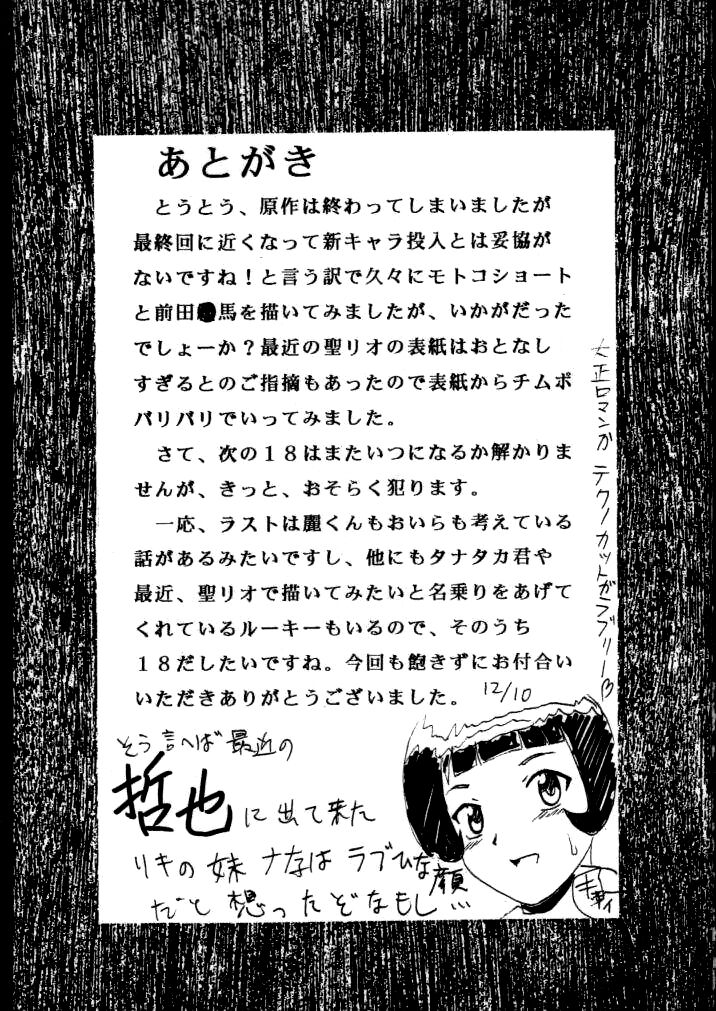 あとがき
とうとう、原作は終わってしまいましたが
最終回に近くなって新キャラ投入とは妥協が
ないですね！と言う訳で久々にモトコショート
と前田馬を描いてみましたが、いかがだった
でしょーか？最近の聖リオの表紙はおとなし
すぎるとのご指摘もあったので表紙からチムポ
バリバリでいってみました。
さて、次の１８はまたいつになるか解かりま
せんが、きっと、おそらく犯ります。
一応、ラストは麗くんもおいらも考えている
話があるみたいですし、他にもタナタカ君や
最近、聖リオで描いてみたいと名乗りをあげて
くれているルーキーもいるので、そのうち
１８だしたいですね。今回も飽きずにお付合い
いただきありがとうございました。 12/10
大正ロマンがテクノカットがラブリー♡
そう言へば最近の
哲也に出て来た
リキの妹ナナはラブひな顔
だと想ったぞなもし…